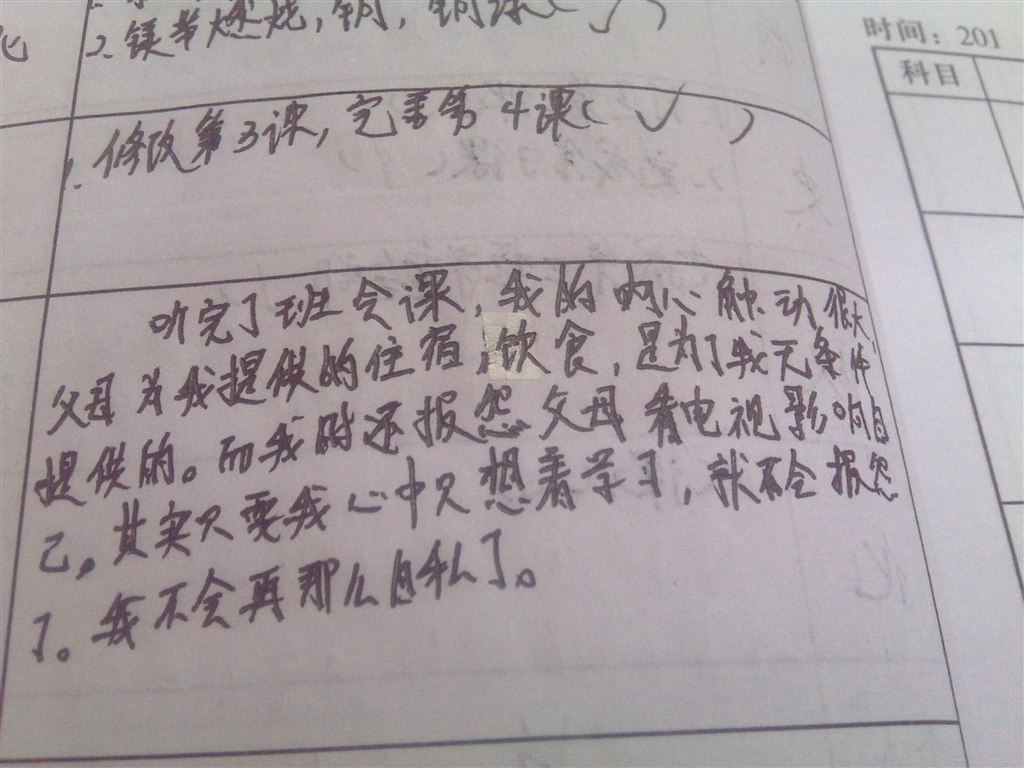 2.镁带燃烧,铜,铜绿(✓)
1.修改第3课,完善第4课(✓)
听完了班会课,我的内心触动很大,
父母为我提供的住宿,饮食,是为了我无条件
提供的。而我时还报怨父母看电视影响自
己。其实只要我心中只想着学习,就不会报怨
了。我不会再那么自私了。
时间:201
科目